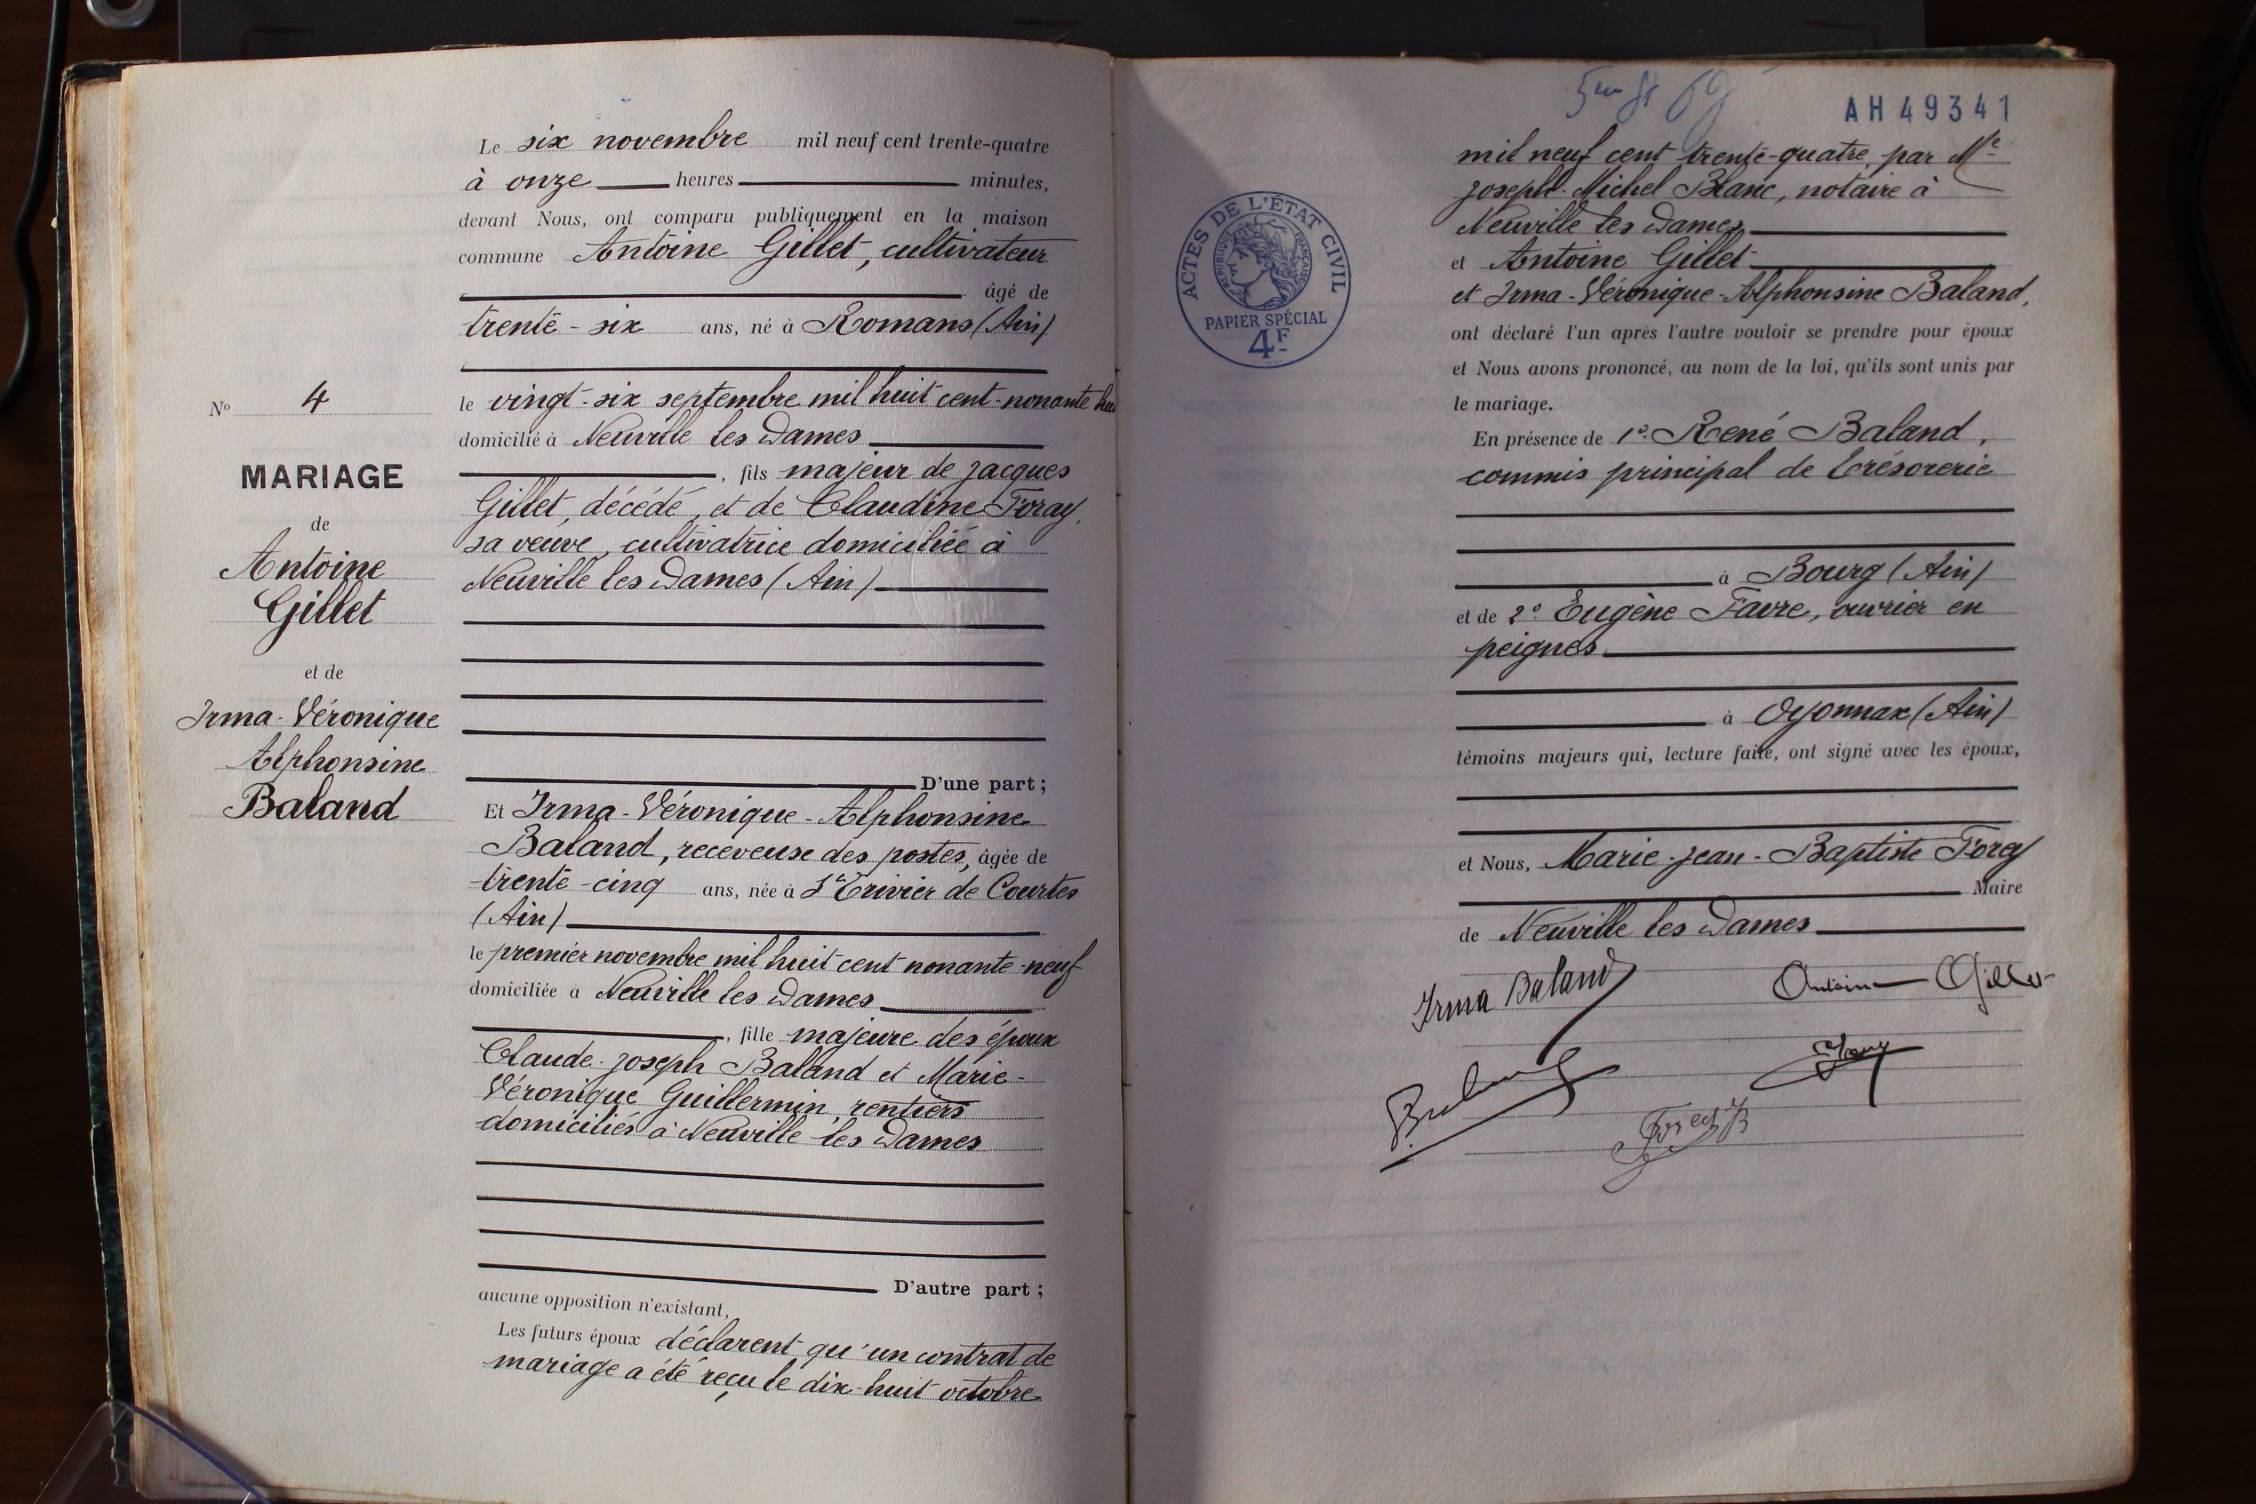 Le six novembre mil neuf cent trente-quatre
à onze heures minutes,
devant Nous, ont comparu publiquement en la maison
commune Antoine Gillet, cultivateur
âgé de
trente-six ans, né à Romans (Ain)
le vingt-six septembre mil huit cent-nonante
domicilié à Neuville les Dames
, fils majeur de Jacques
Gillet, décédé, et de Claudine Foray,
sa veuve, cultivatrice domiciliée à
Neuville les Dames (Ain)
D'une part ;
Et Irma-Véronique-Alphonsine
Baland, receveuse des postes, âgée de
trente-cinq ans, née à St Trivier de Courtes
(Ain)
le premier novembre mil huit cent nonante-neuf
domiciliée à Neuville les Dames
, fille majeure des époux
Claude-Joseph Baland et Marie-
Véronique Guillermin, rentiers
domiciliés à Neuville les Dames
D'autre part ;
aucune opposition n'existant,
Les futurs époux déclarent qu'un contrat de
mariage a été reçu le dix-huit octobre
No 4
MARIAGE
de
Antoine
Gillet
et de
Irma-Véronique
Alphonsine
Baland
AH 49341
mil neuf cent trente-quatre, par Me
Joseph-Michel Blanc, notaire à
Neuville les Dames
et Antoine Gillet
et Irma-Véronique-Alphonsine Baland,
ont déclaré l'un après l'autre vouloir se prendre pour époux
et Nous avons prononcé, au nom de la loi, qu'ils sont unis par
le mariage.
En présence de 1º René Baland,
commis principal de trésorerie
à Bourg (Ain)
et de 2º Eugène Favre, ouvrier en
peignes
à Oyonnax (Ain)
témoins majeurs qui, lecture faite, ont signé avec les époux,
et Nous, Marie-Jean-Baptiste Foray
Maire
de Neuville les Dames
Irma Baland Antoine Gillet
Baland
ACTES DE L'ÉTAT CIVIL
RÉPUBLIQUE FRANÇAISE
PAPIER SPÉCIAL
4F